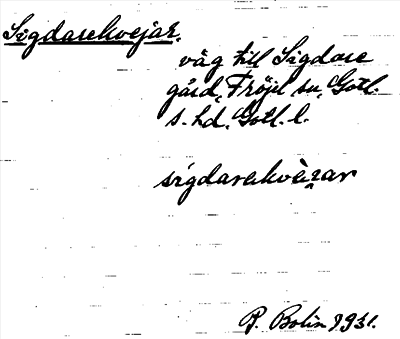 Sigdarekvejar,
väg till Sigdare
gård, Fröjel sn, Gotl.
s. hd. Gotl. l.
sigdarekvèi̯ar
P. Bolin 1931.